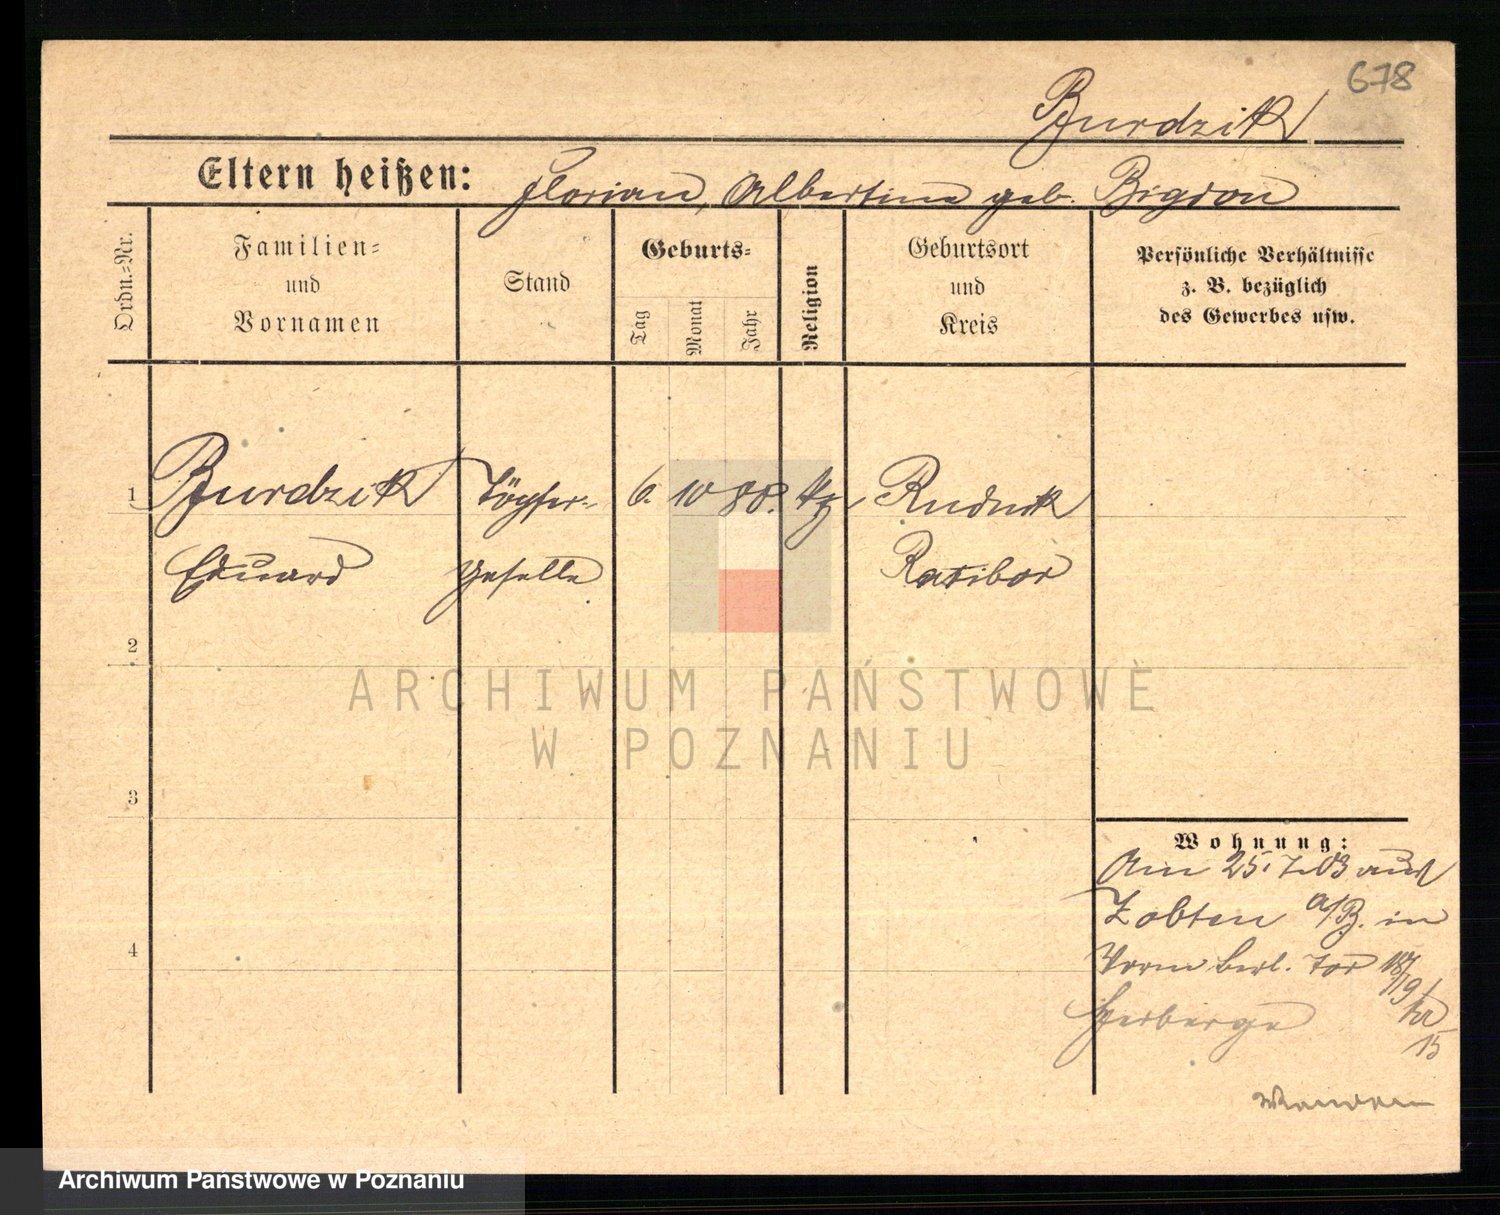 678
Burdzik
Eltern heißen: Florian, Albertine geb. Bigdon
Ordn.=Nr.
Familien=
und
Vornamen
Stand
Geburts=
Tag
Monat
Jahr
Religion
Geburtsort
und
Kreis
Persönliche Verhältnisse
z. B. bezüglich
des Gewerbes usw.
1 Burdzik Töpfer= 6. 10 80. Rudnik
Eduard geselle Ratibor
2
3
4
Wohnung:
Am 25. 7. 03 aus
Zobten a/B. in
Vorm berl. Tor 18/
19
Herberge
15
ARCHIWUM PAŃSTWOWE
W POZNANIU
Archiwum Państwowe w Poznaniu